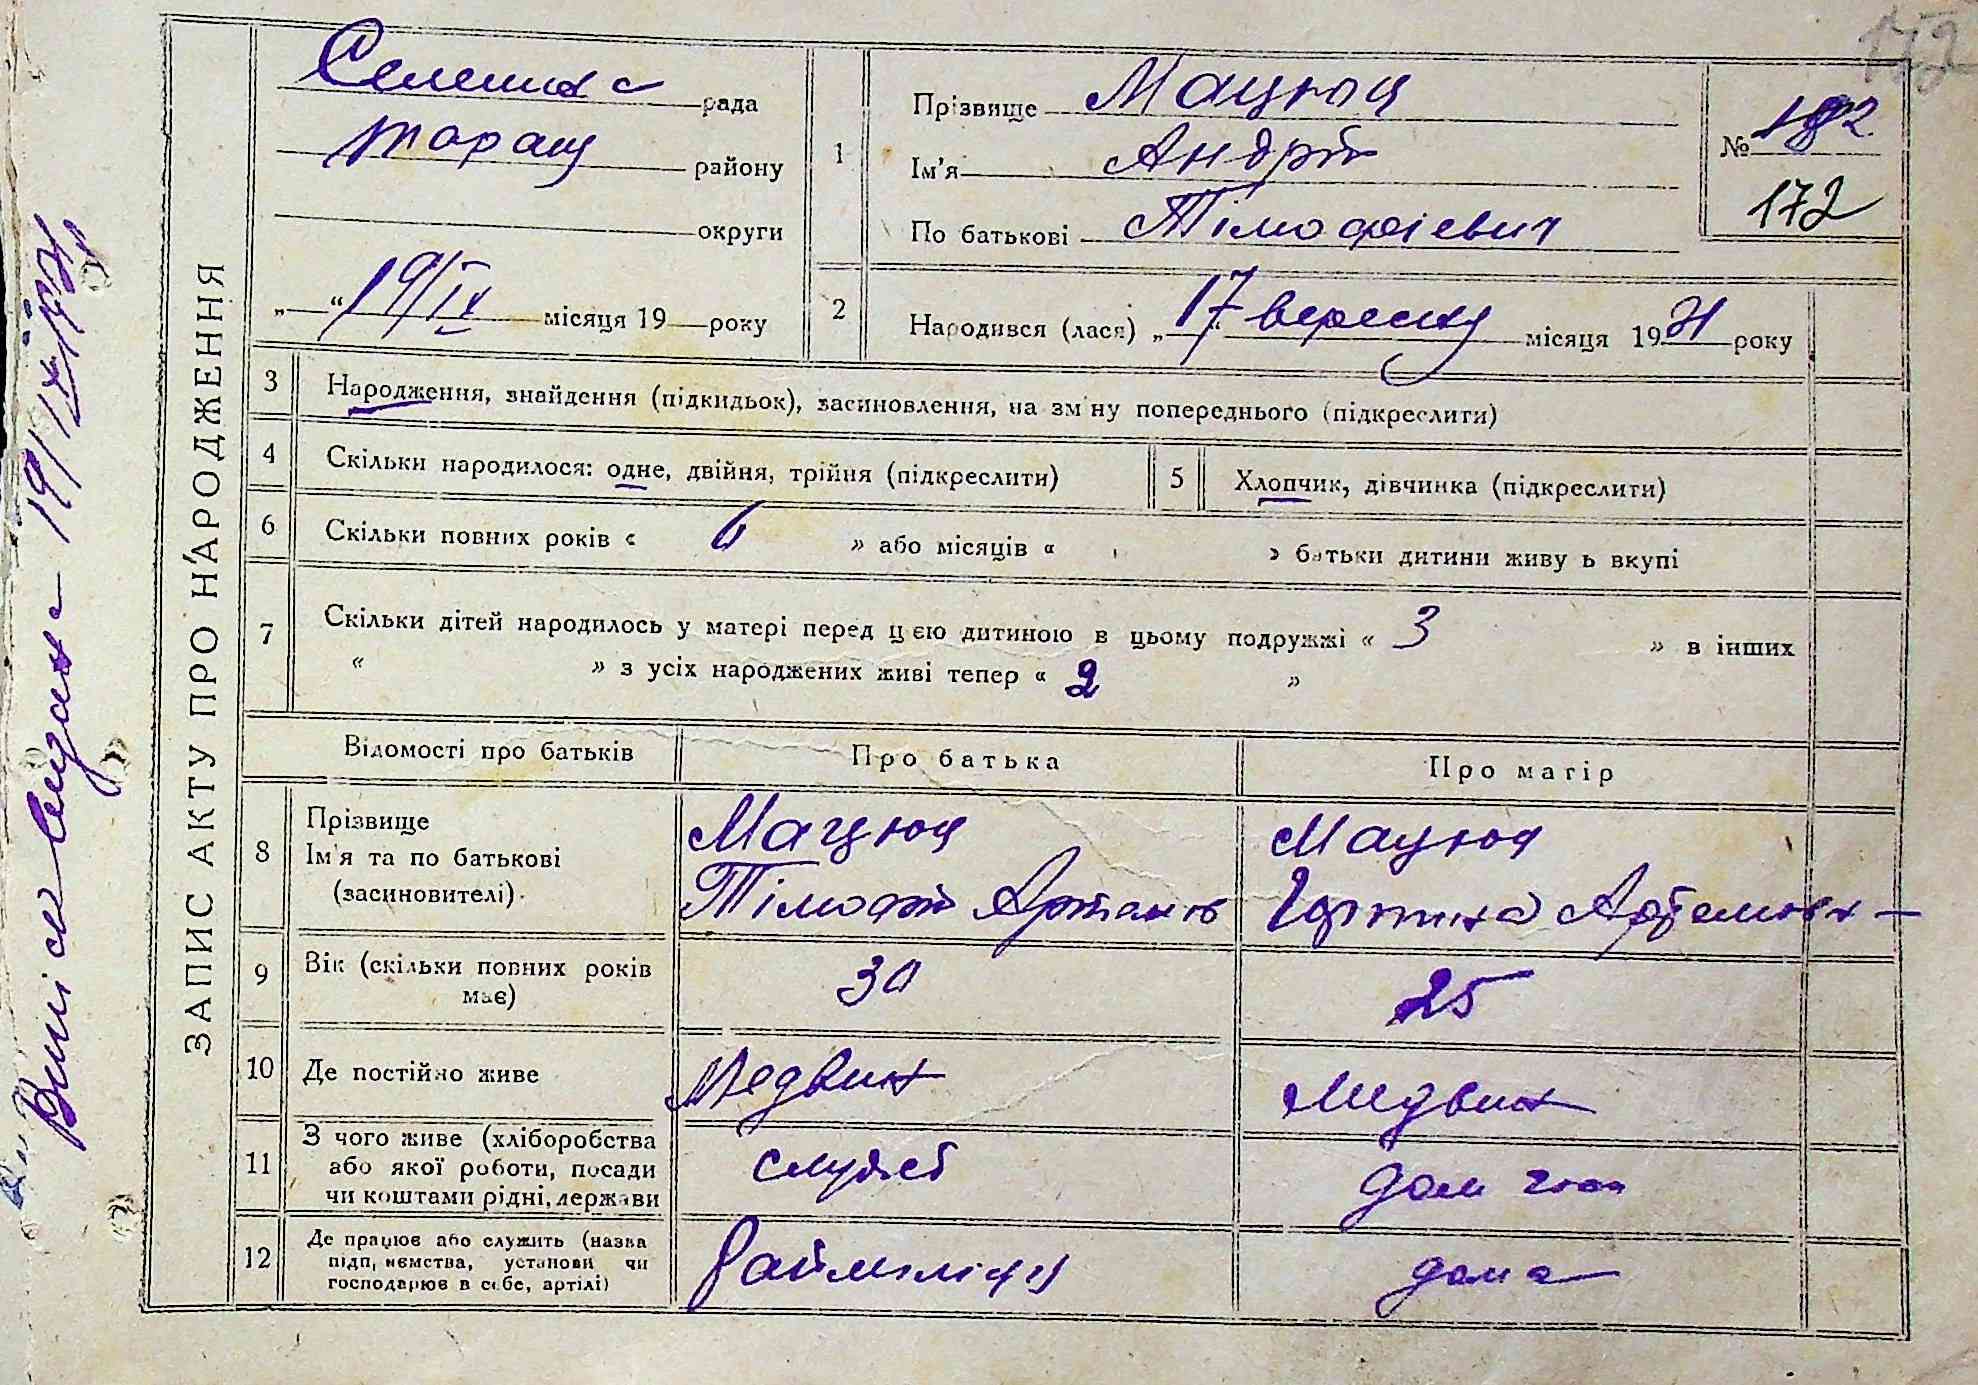 172
ЗАПИС АКТУ ПРО НАРОДЖЕННЯ
рада
Таращ району
округи
„ “ 19/IX місяця 19 року
1
Прізвище Мацюца
Ім'я Андрій
По батькові Тімофієвич
№ 182
172
2
Народився (лася) „17“ вересня місяця 1931 року
3 Народження, знайдення (підкидьок), засиновлення, на зміну попереднього (підкреслити)
4 Скільки народилося: одне, двійня, трійня (підкреслити)
5 Хлопчик, дівчинка (підкреслити)
6 Скільки повних років « 6 » або місяців « » батьки дитини живуть вкупі
7 Скільки дітей народилось у матері перед цією дитиною в цьому подружжі « 3 » в інших
« » з усіх народжених живі тепер « 2 »
Відомості про батьків Про батька Про матір
8 Прізвище
Ім'я та по батькові
(засиновителі)
Мацюца
Тімофій
Мацюца
Артемовна
9 Вік (скільки повних років
має)
30
25
10 Де постійно живе
Медвин
Медвин
11 З чого живе (хліборобства
або якої роботи, посади
чи коштами рідні, держави
службі
дом
12 Де працює або служить (назва
підприємства, установи чи
господарює в себе, артілі)
Райміліції
дома